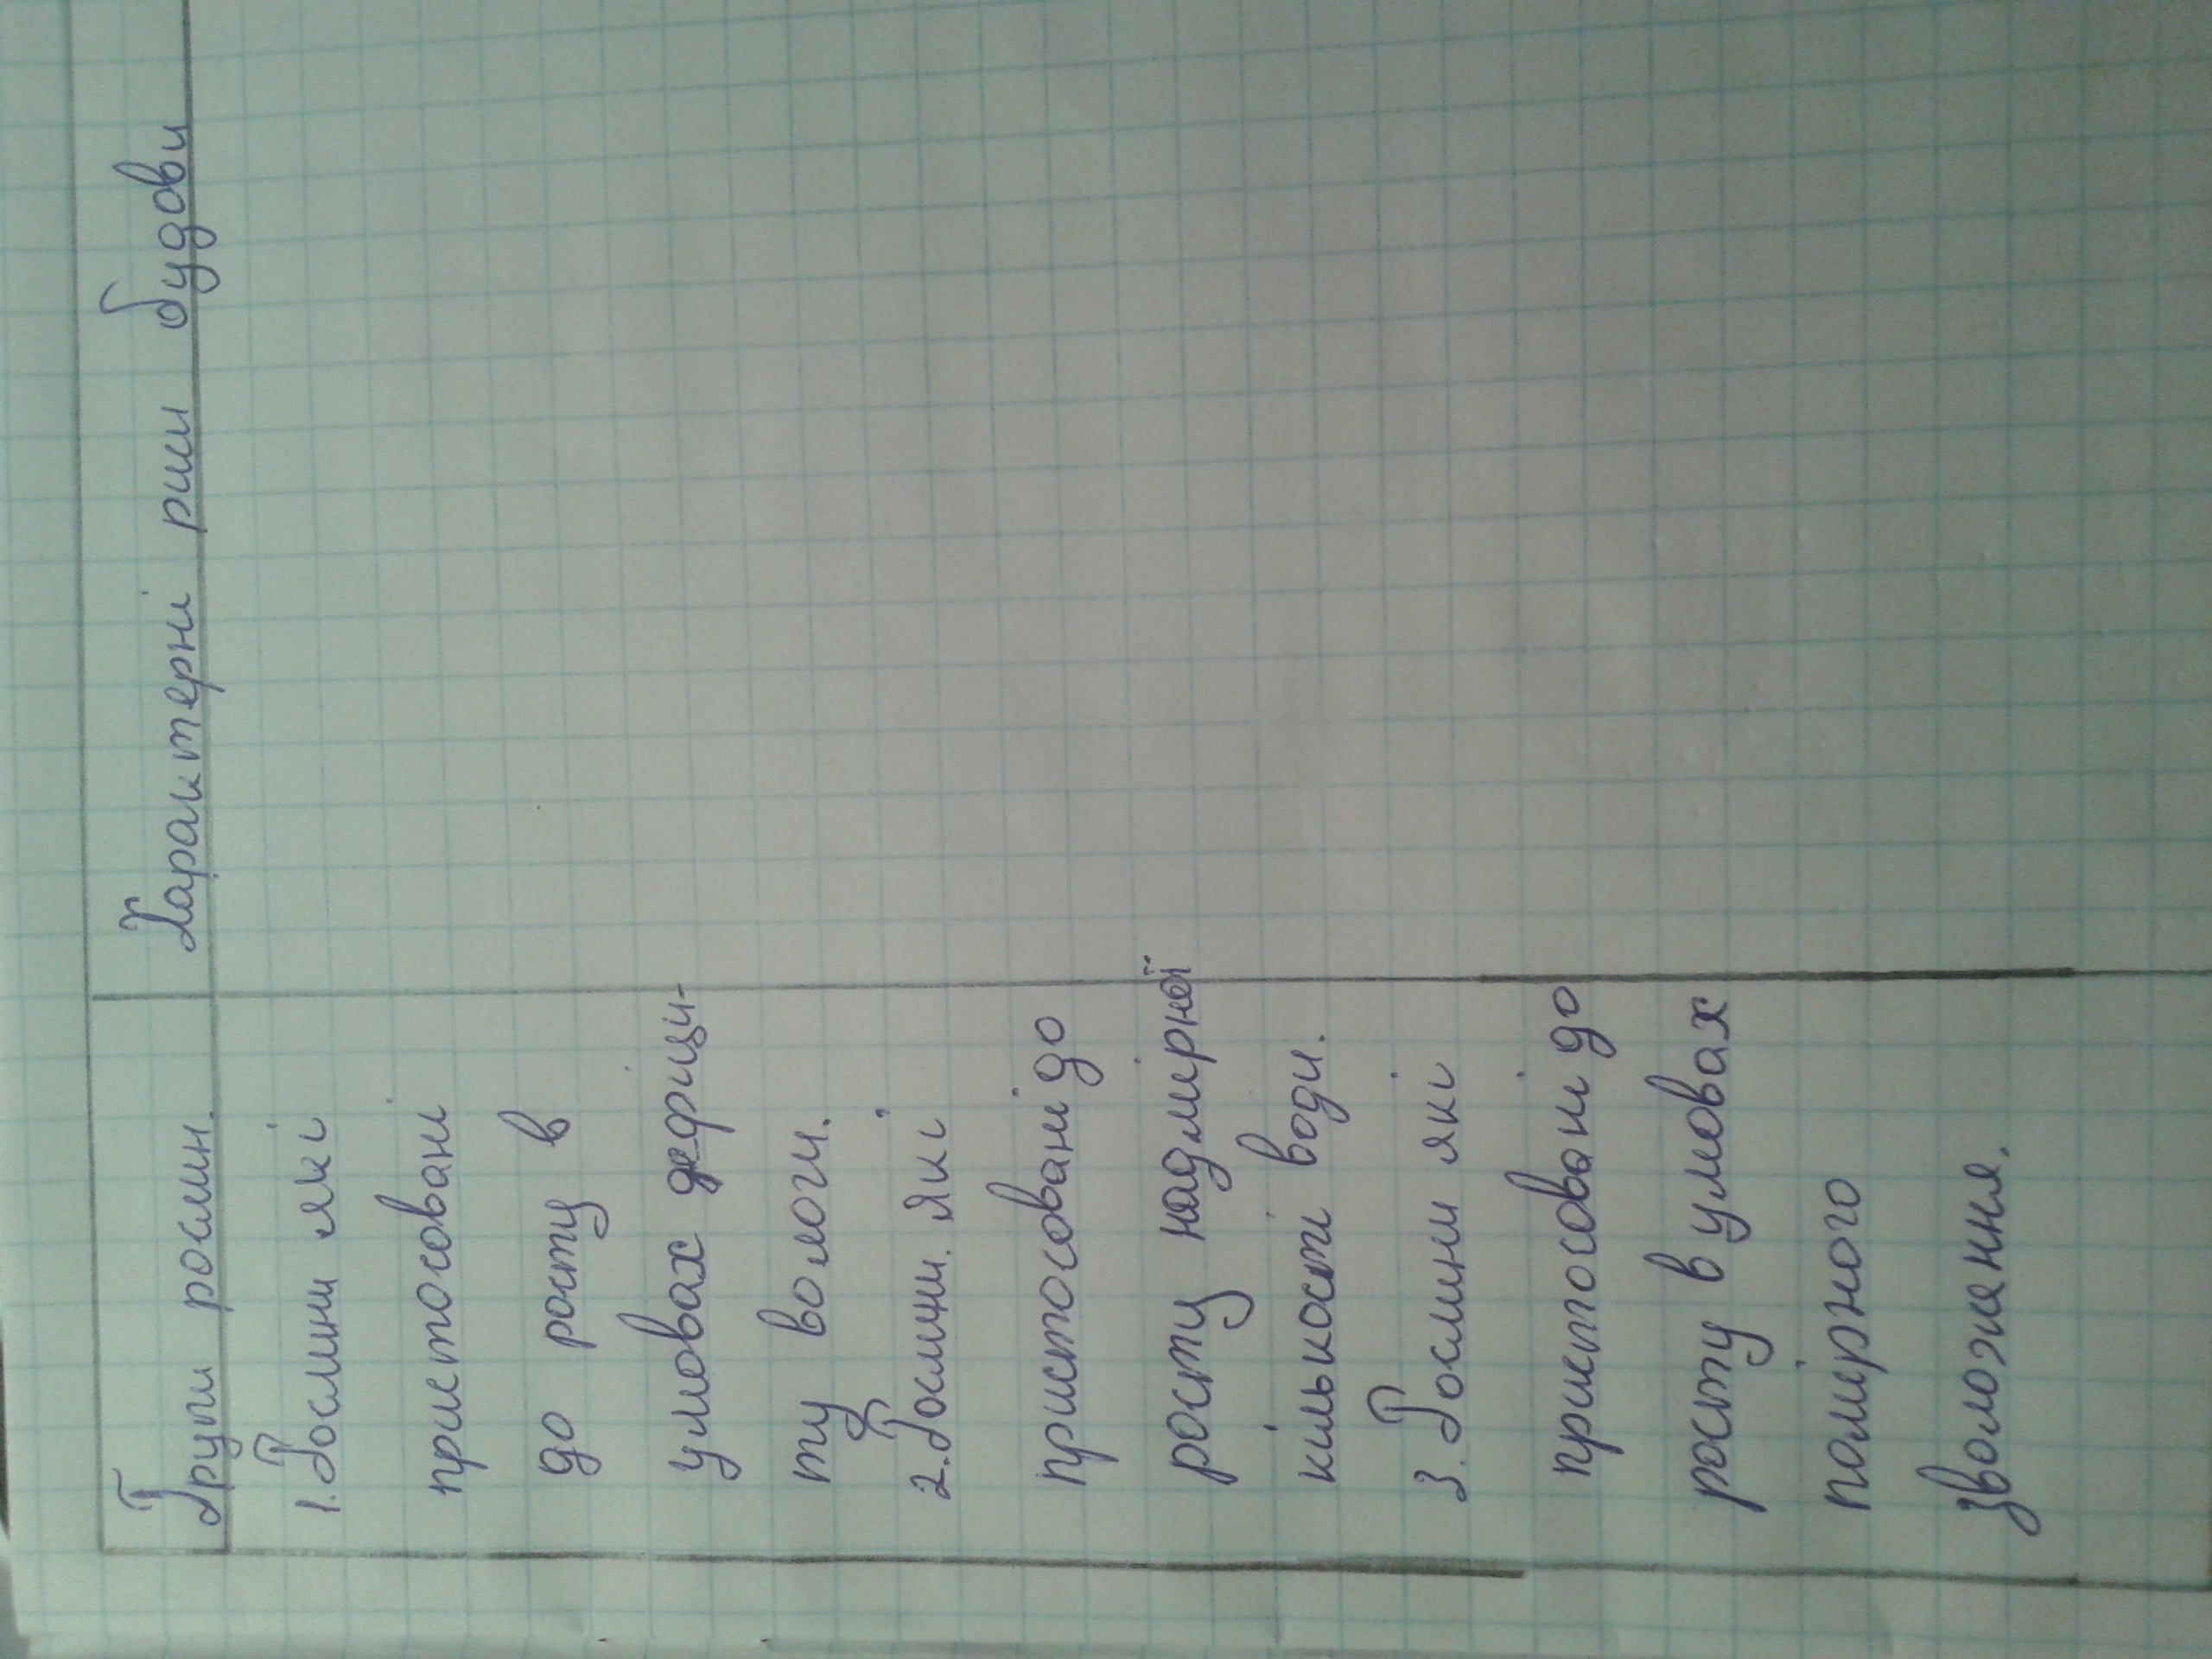 Групи рослин. Характерні риси будови
1. Рослини які
пристосовані
до росту в
умовах дефіци-
ту вологи.
2. Рослини. які
пристосовані до
росту надмірної
кількості води.
3. Рослини які
пристосовані до
росту в умовах
помірного
зволоження.